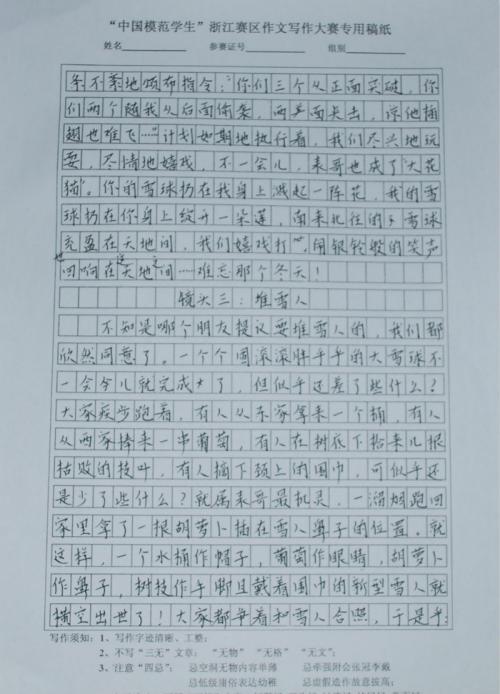 “中国模范学生”浙江赛区作文写作大赛专用稿纸
姓名 参赛证号 组别
条不紊地颁布指令：“你们三个从正面突破，你
们两个随我从后面偷袭，两面夹击，谅他插
翅也难飞……”计划如期地执行着，我们尽兴地玩
耍，尽情地嬉戏，不一会儿，表哥也成了“大花
猫”。你的雪球扔在我身上溅起一阵花，我的雪
球扔在你身上绽开一朵莲，南来北往的雪球
充盈在天地间，我们嬉戏打，用银铃般的笑声
也回响在这天地之间……难忘那个冬天！
镜头三：堆雪人
不知是哪个朋友提议要堆雪人的，我们都
欣然同意了。一个个圆滚滚胖乎乎的大雪球不
一会儿就完成大了，但似乎还差了些什么？
大家疾步跑着，有人从东家拿来一个桶，有人
从西家捧来一串葡萄，有人在树底下拾来几根
枯败的枝叶，有人摘下颈上的围巾，可似乎还
是少了些什么？就属表哥最机灵，一溜烟跑回
家里拿了一根胡萝卜插在雪人鼻子的位置。就
这样，一个水桶作帽子，葡萄作眼睛，胡萝卜
作鼻子，树枝作手脚且戴着围巾的新型雪人就
横空出世了！大家都争着和雪人合照，于是乎
写作须知：1、写作字迹清晰、工整；
2、不写“三无”文章： “无物” “无格” “无文”；
3、注意“四忌”： 忌空洞无物内容单薄 忌牵强附会张冠李戴
忌低级庸俗表达幼稚 忌虚假造作故意拔高；